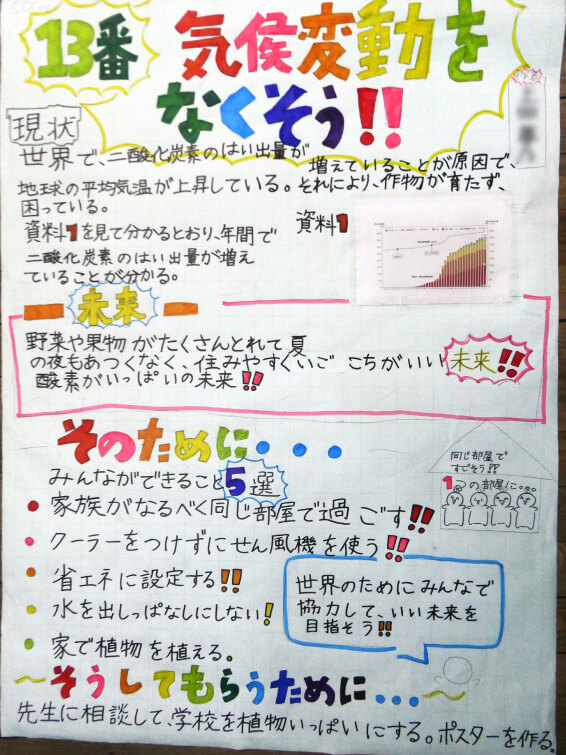 13番
気候変動を
なくぞう!!
現状
世界で、二酸化炭素のはい出量が増えていることが原因で、
地球の平均気温が上昇している。それにより、作物が育たず、
困っている。
資料1を見て分かるとおり、年間で
二酸化炭素のはい出量が増え
ていることが分かる。
資料1
未来
野菜や果物がたくさんとれて夏
の夜もあつくなく、住みやすくいごこちがいい未来!!
酸素がいっぱいの未来!!
そのために・・・
みんなができること5選
家族がなるべく同じ部屋で過ごす!!
クーラーをつけずにせん風機を使う!!
省エネに設定する!!
水を出しっぱなしにしない!
家で植物を植える。
同じ部屋で
すごそう!!
1つの部屋に。。。
世界のためにみんなで
協力して、いい未来を
目指そう!!
~そうしてもらうために...~
先生に相談して、学校を植物いっぱいにする。ポスターを作る。